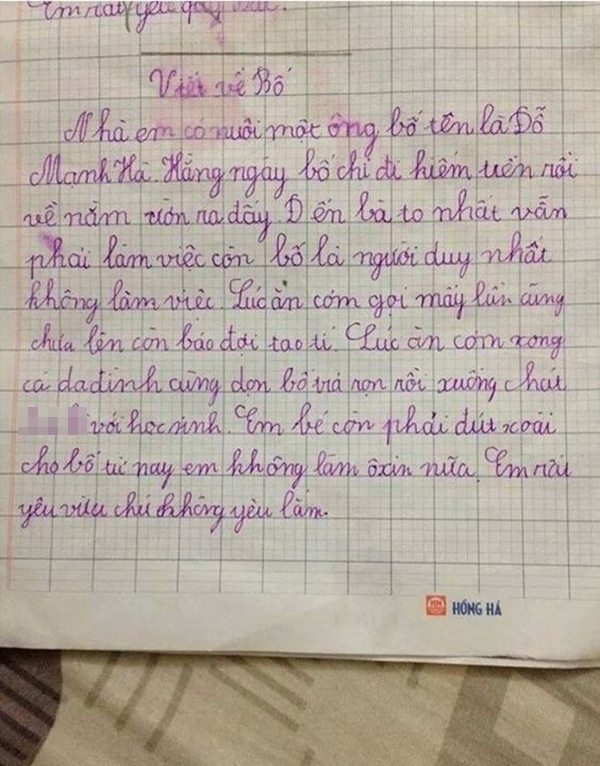 Em rất yêu quý
Viết về Bố
Nhà em có nuôi một ông bố tên là Đỗ
Mạnh Hà. Hằng ngày bố chỉ đi kiếm tiền rồi
về nằm ườn ra đấy Đến bà to nhất vẫn
phải làm việc còn bố là người duy nhất
không làm việc. Lúc ăn cơm gọi mấy lần cũng
chưa lên còn bảo đợi tao tí. Lúc ăn cơm xong
cả da đình cùng dọn bố trả rọn rồi xuống chát
với học sinh. Em bé còn phải đút xoài
cho bố từ nay em không làm ôxin nữa. Em rất
yêu vừa chứ không yêu lắm.
HỒNG HÀ